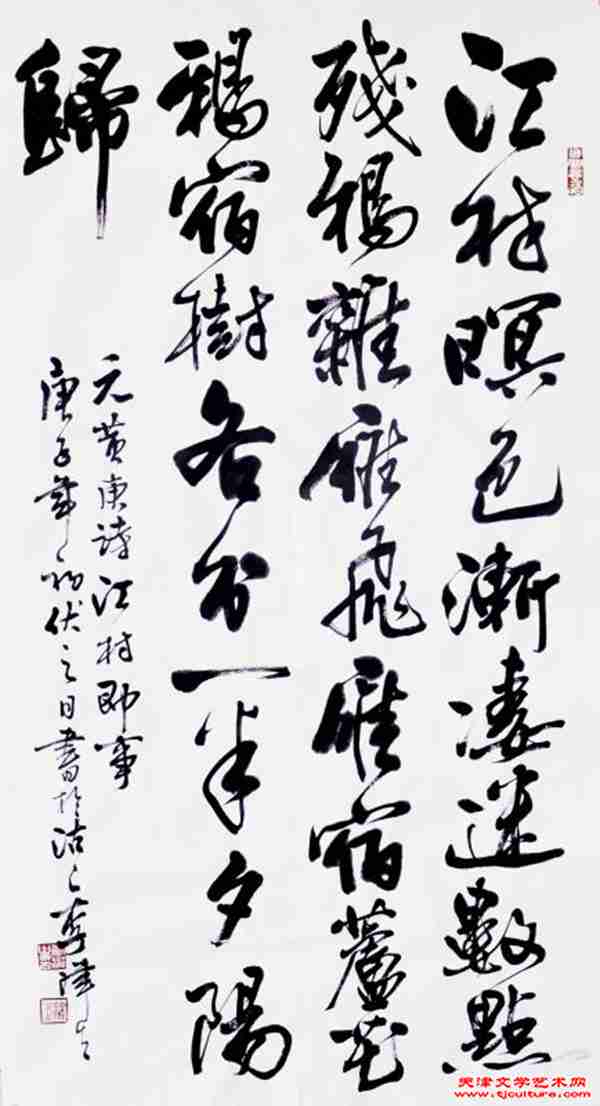 江村暝色漸凄迷數點
殘鴉雜雁飛雁宿蘆花
鴉宿樹各分一半夕陽
歸
元黄庚詩江村即事
庚子年初伏之日書於沽上李
天津文学艺术网
www.tjculture.com